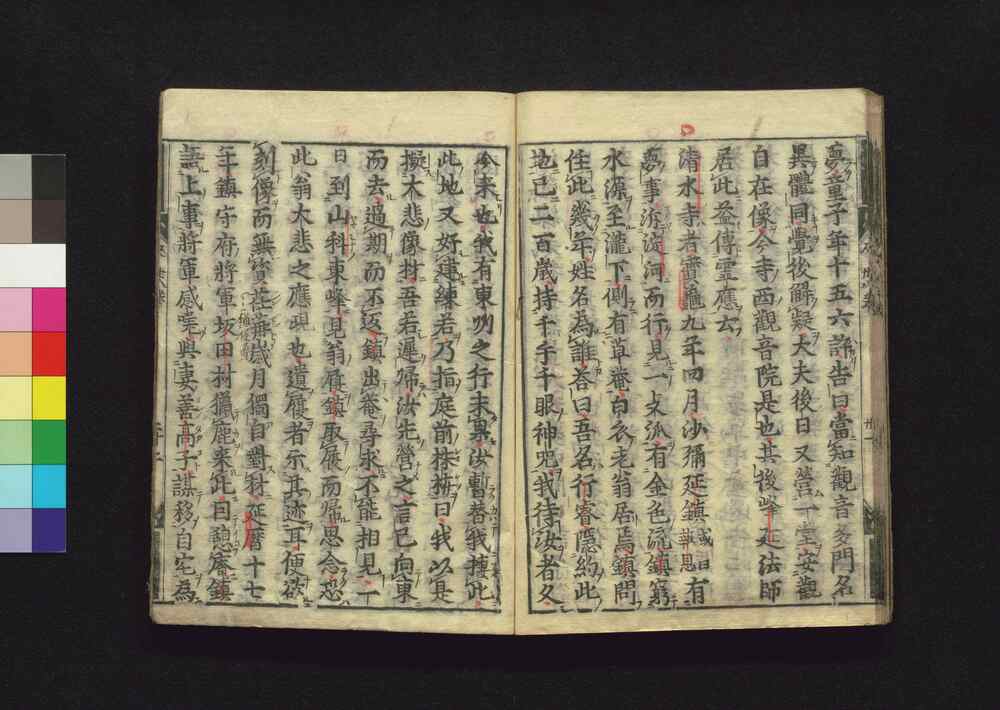 夢童子年十五六許告曰當知觀音多門名
異體同覺後解疑大夫後日又營一堂安觀
自在像今寺西觀音院是也其後峰延法師
居此益傳靈應云
清水寺者寶龜九年四月沙彌延鎮或曰報恩有
夢事泝淀河而行見一支派有金色流鎮窮
水源至瀧下側有草菴白衣老翁居焉鎮問
住此幾年姓名為誰答曰吾名行睿隱約此
地已二百歲持千手千眼神咒我待汝者久
今來也我有東州之行未果汝暫替我據此
此地又好建練若乃指庭前株枿曰我以是
擬大悲像材吾若遲歸汝先營之言已向東
而去過期而不返鎮出菴尋求不能相見一
日到山科東峰見翁屐鎮取屐而歸思念恐
此翁大悲之應現也遺屐者示其迹耳便欲
刻像而無資荏苒歲月獨自對材延曆十七
年鎮守府將軍坂田村獵鹿來此因憩菴鎮
語上事將軍感嘆與妻善高子謀移自宅為